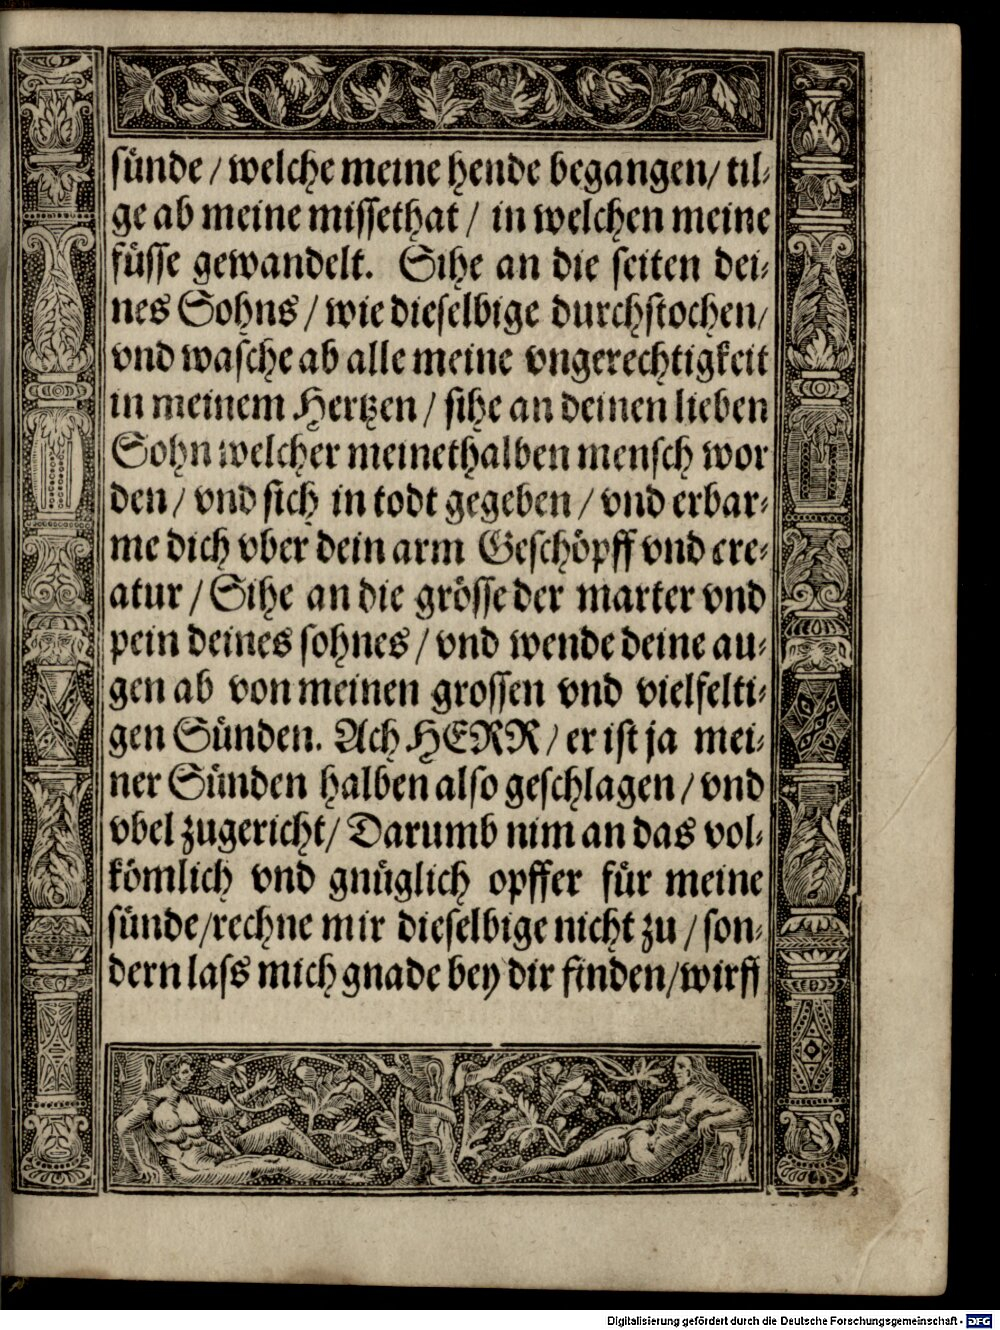 sünde / welche meine hende begangen / til-
ge ab meine missethat / in welchen meine
füsse gewandelt. Sihe an die seiten dei-
nes Sohns / wie dieselbige durchstochen /
vnd wasche ab alle meine vngerechtigkeit
in meinem Hertzen / sihe an deinen lieben
Sohn welcher meinethalben mensch wor
den / vnd sich in todt gegeben / vnd erbar-
me dich vber dein arm Geschöpff vnd cre-
atur / Sihe an die grösse der marter vnd
pein deines sohnes / vnd wende deine au-
gen ab von meinen grossen vnd vielfelti-
gen Sünden. Ach HERR / er ist ja mei-
ner Sünden halben also geschlagen / vnd
vbel zugericht / Darumb nim an das vol-
kömlich vnd gnüglich opffer für meine
sünde / rechne mir dieselbige nicht zu / son-
dern lass mich gnade bey dir finden / wirff
Digitalisierung gefördert durch die Deutsche Forschungsgemeinschaft - DFG